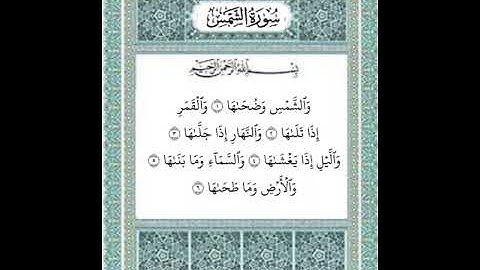 سُورَةُ الشَّمْسِ
بِسْمِ اللَّهِ الرَّحْمَٰنِ الرَّحِيمِ
وَٱلشَّمْسِ وَضُحَىٰهَا ١ وَٱلْقَمَرِ
إِذَا تَلَىٰهَا ٢ وَٱلنَّهَارِ إِذَا جَلَّىٰهَا ٣
وَٱلَّيْلِ إِذَا يَغْشَىٰهَا ٤ وَٱلسَّمَآءِ وَمَا بَنَىٰهَا ٥
وَٱلْأَرْضِ وَمَا طَحَىٰهَا ٦